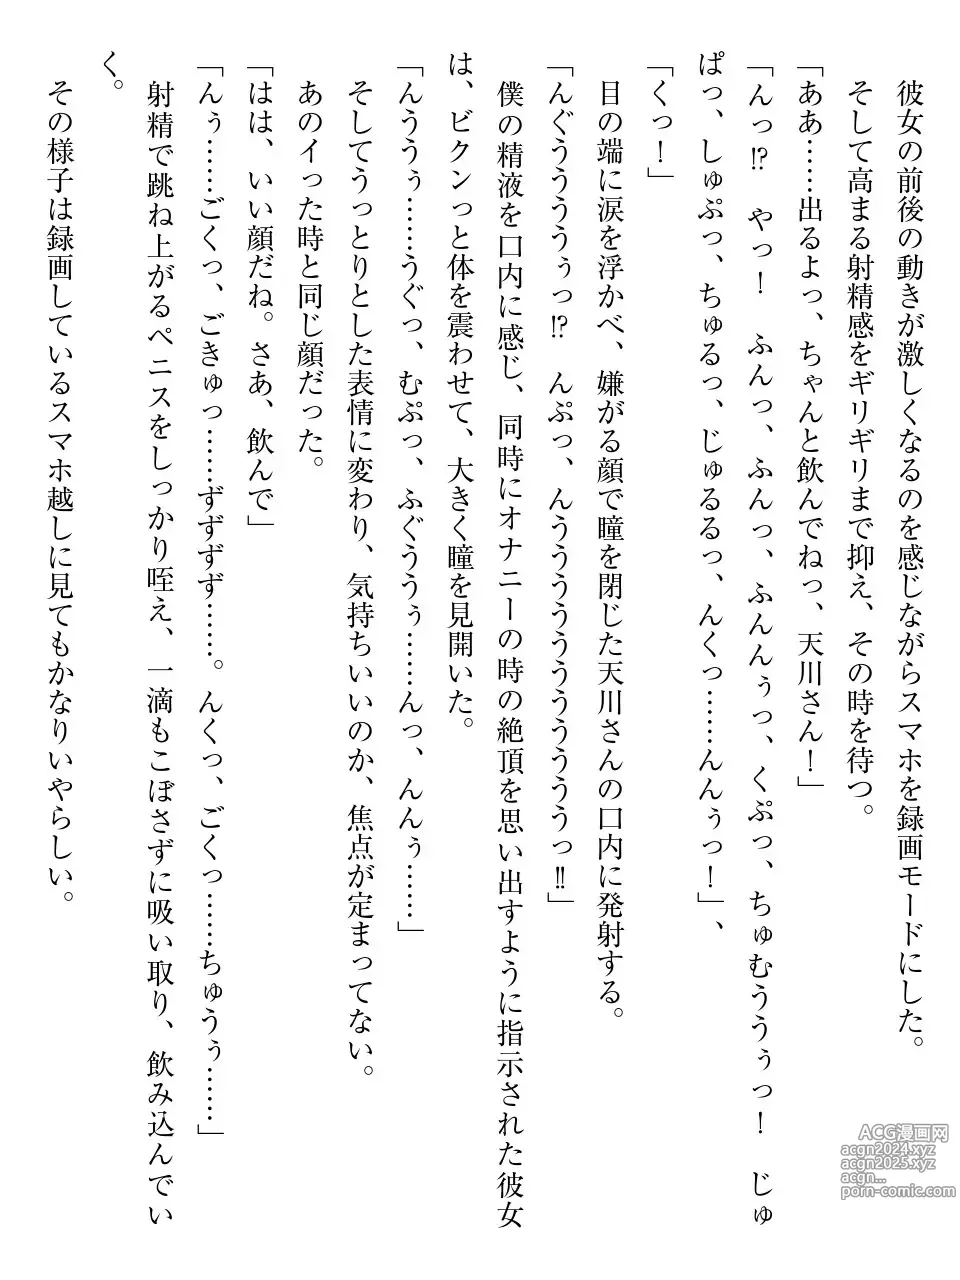 彼女の前後の動きが激しくなるのを感じながらスマホを録画モードにした。
そして高まる射精感をギリギリまで抑え、その時を待つ。
「ああ……出るよっ、ちゃんと飲んでねっ、天川さん！」
「んっ⁉　やっ！　ふんっ、ふんっ、ふんんぅっ、くぷっ、ちゅむううぅっ！　じゅ
ぱっ、しゅぷっ、ちゅるっ、じゅるるっ、んくっ……んんぅっ！」、
「くっ！」
目の端に涙を浮かべ、嫌がる顔で瞳を閉じた天川さんの口内に発射する。
「んぐううううぅっ⁉　んぷっ、んうううううううううううっ‼」
僕の精液を口内に感じ、同時にオナニーの時の絶頂を思い出すように指示された彼女
は、ビクンっと体を震わせて、大きく瞳を見開いた。
「んううぅ……うぐっ、むぷっ、ふぐううぅ……んっ、んんぅ……」
そしてうっとりとした表情に変わり、気持ちいいのか、焦点が定まってない。
あのイった時と同じ顔だった。
「はは、いい顔だね。さあ、飲んで」
「んぅ……ごくっ、ごきゅっ……ずずずず……。んくっ、ごくっ……ちゅうぅ……」
射精で跳ね上がるペニスをしっかり咥え、一滴もこぼさずに吸い取り、飲み込んでい
く。
その様子は録画しているスマホ越しに見てもかなりいやらしい。
ACG漫画网
acgn2024.xyz
acgn2025.xyz
acgn...
porn-comic.com